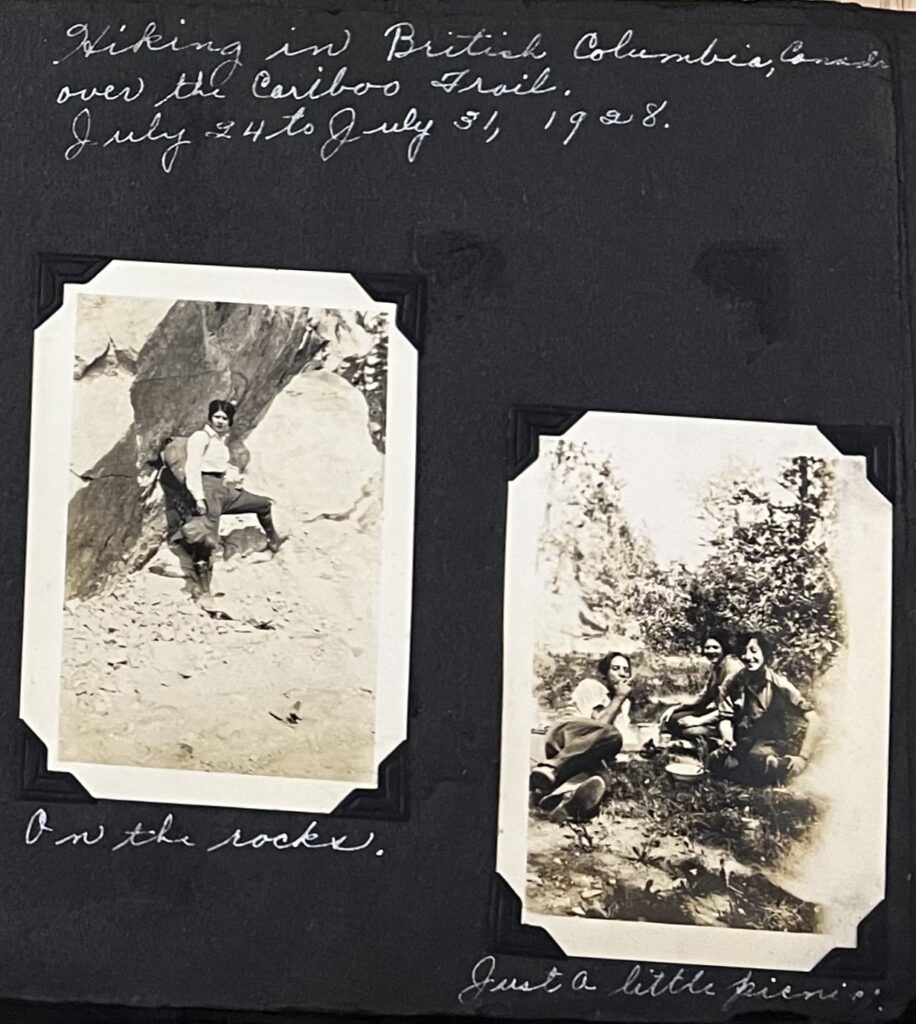 Hiking in British Columbia, Canada
over the Cariboo Trail.
July 24 to July 31, 1928.
On the rocks.
Just a little picnic.